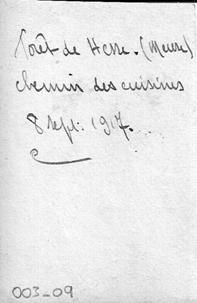 Forêt de Hesse. (Meuse)
chemin des cuisines
8 sept: 1917.
003-09